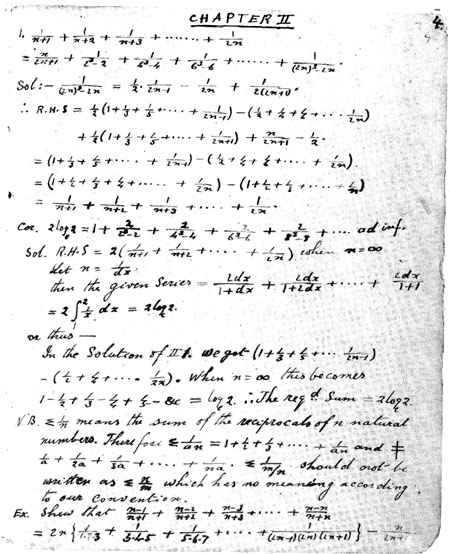 CHAPTER II
4.
1. 1/(n+1) + 1/(n+2) + 1/(n+3) + ...... + 1/(2n)
= n/(2n+1) + 1/(2³-2) + 1/(4³-4) + 1/(6³-6) + ...... + 1/((2n)³-2n)
Sol:- 1/((2n)³-2n) = 1/2 · 1/(2n-1) - 1/(2n) + 1/(2(2n+1)).
∴ R.H.S = 1/2(1+1/3+1/5+....+1/(2n-1)) - (1/2+1/4+1/6+....1/(2n))
+ 1/2(1+1/3+1/5+....+1/(2n+1)) + n/(2n+1) - 1/2.
= (1+1/3+1/5+....+1/(2n-1)) - (1/2+1/4+1/6+....+1/(2n)).
= (1+1/2+1/3+1/4+....+1/(2n)) - (1+1/2+1/3+....+1/n)
= 1/(n+1) + 1/(n+2) + 1/(n+3) + .... + 1/(2n).
Cor. 2log2 = 1 + 2/(2³-2) + 2/(4³-4) + 2/(6³-6) + 2/(8³-8) + ... ad inf.
Sol. R.H.S = 2(1/(n+1) + 1/(n+2) + .... + 1/(2n)) when n=∞
Let n = 1/dx.
then the given Series = 2dx/(1+dx) + 2dx/(1+2dx) + .... + 2dx/(1+1)
= 2∫₁² 1/x dx = 2log2.
or thus —
In the Solution of II 1. we got (1+1/3+1/5+...1/(2n-1))
- (1/2+1/4+....1/(2n)). When n=∞ this becomes
1-1/2+1/3-1/4+1/5-&c = log2. ∴ The reqd. Sum = 2log2.
N.B. Σ 1/n means the sum of the reciprocals of n natural
numbers. Therefore Σ 1/(an) = 1+1/2+1/3+....+1/(an) and ≠
1/a + 1/(2a) + 1/(3a) + .... + 1/(na). Σ 1/(m/n) should not be
written as Σ n/m which has no meaning according
to our convention.
Ex. Shew that (n-1)/(n+1) + (n-2)/(n+2) + (n-3)/(n+3) + .... + (n-n)/(n+n)
= 2n{1/(1·2·3) + 1/(3·4·5) + 1/(5·6·7) + .... + 1/((2n-1)(2n)(2n+1))} - n/(2n+1)